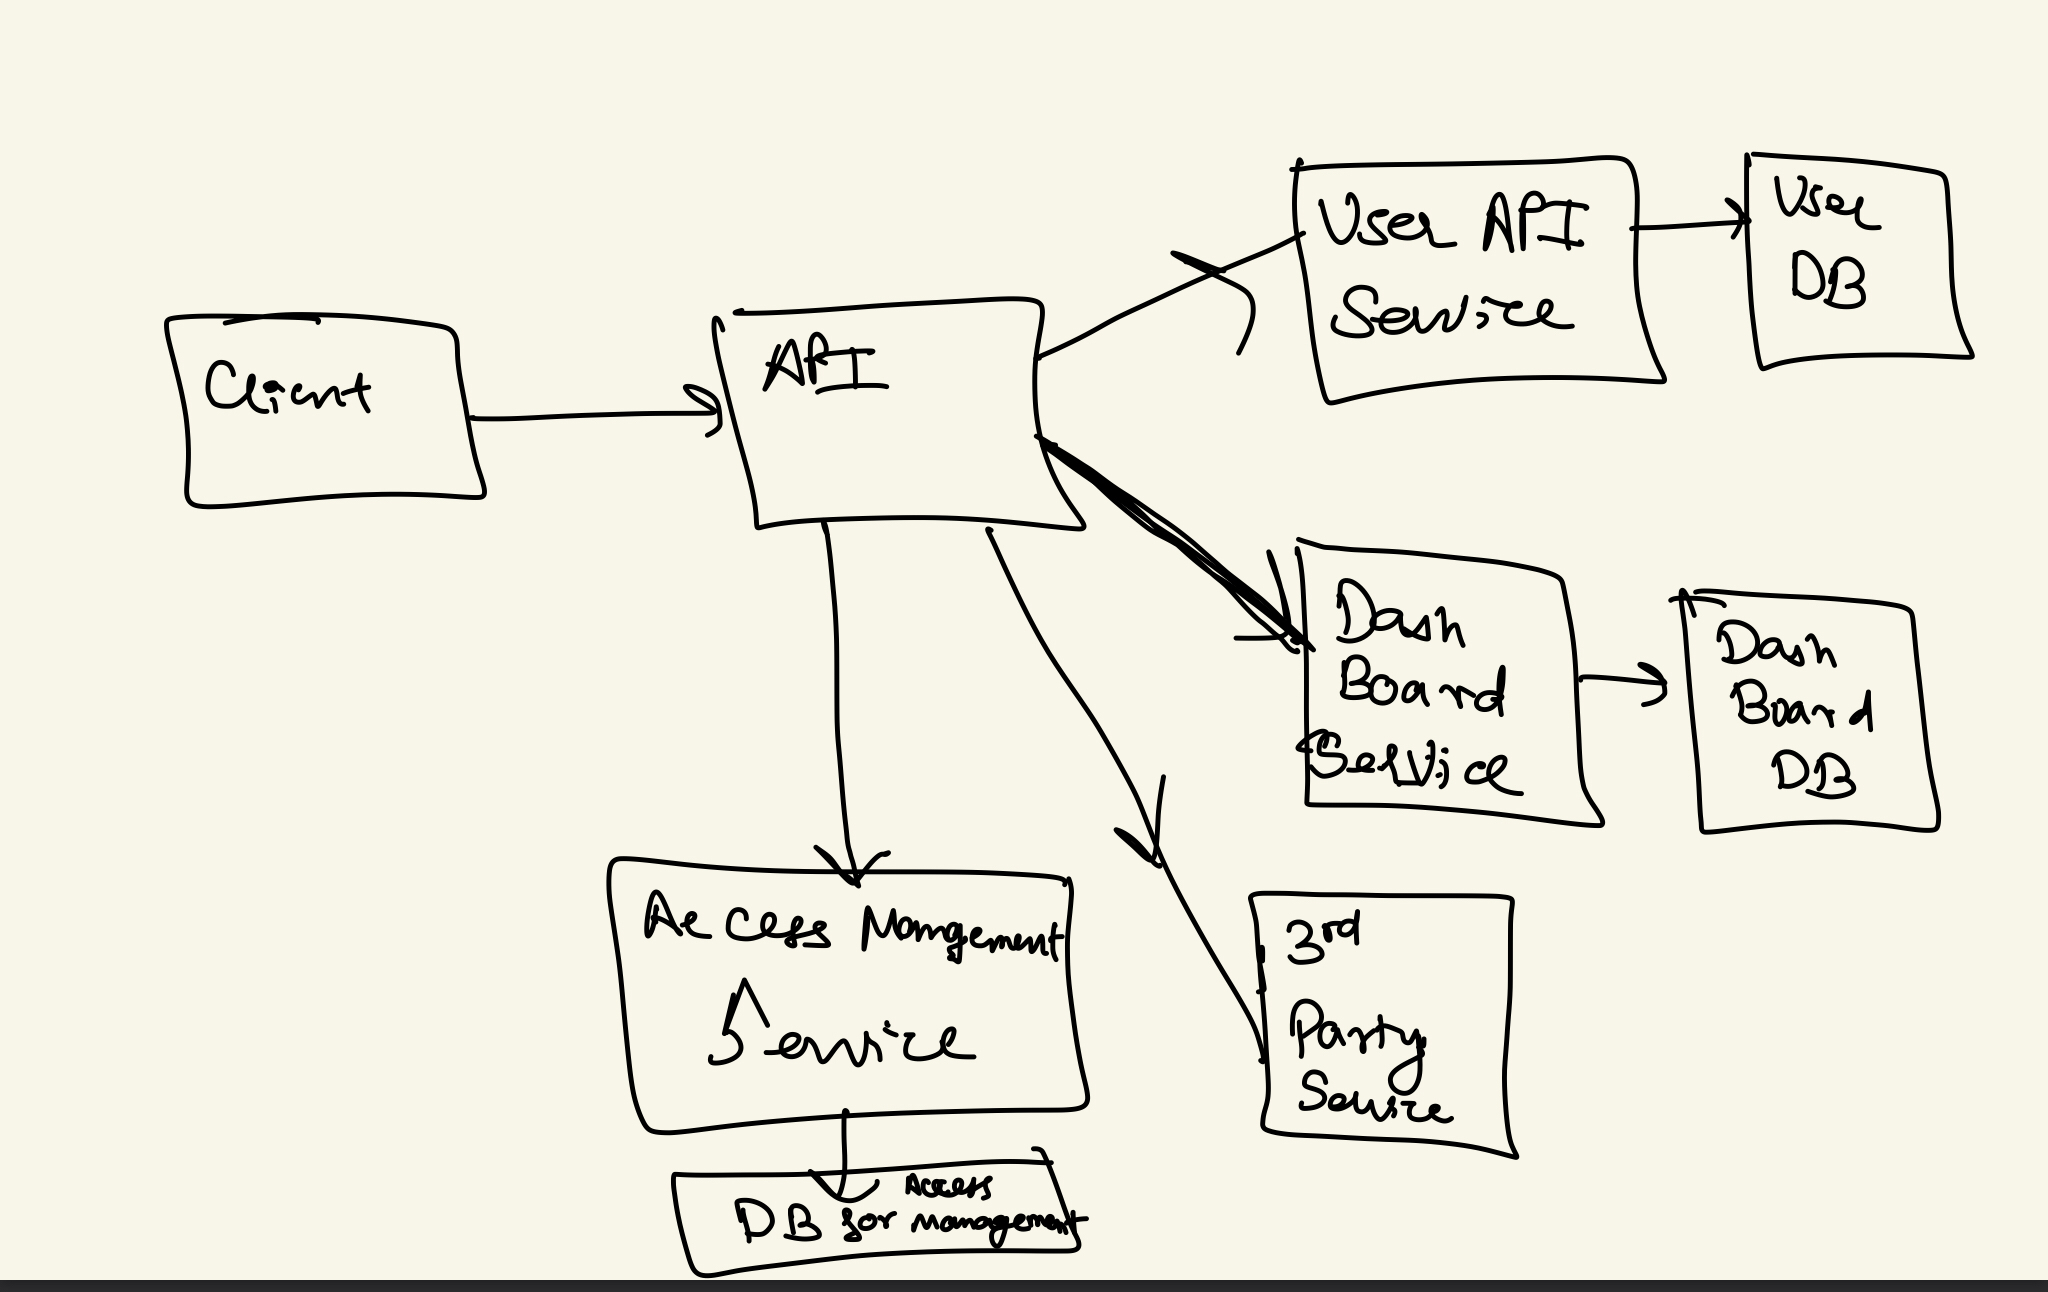 Client
API
User API
Service
User
DB
Dash
Board
Service
Dash
Board
DB
Access Mangement
Service
3rd
Party
Service
Access
DB for management